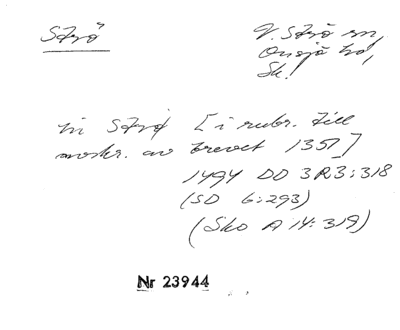 Strö
V. Strö sn,
Onsjö hd,
Sk.
in Strø [i rubr. till
avskr. av brevet 1351]
1494 DD 3R3:318
(SD 6:293)
(Sko A 14:319)
Nr 23944